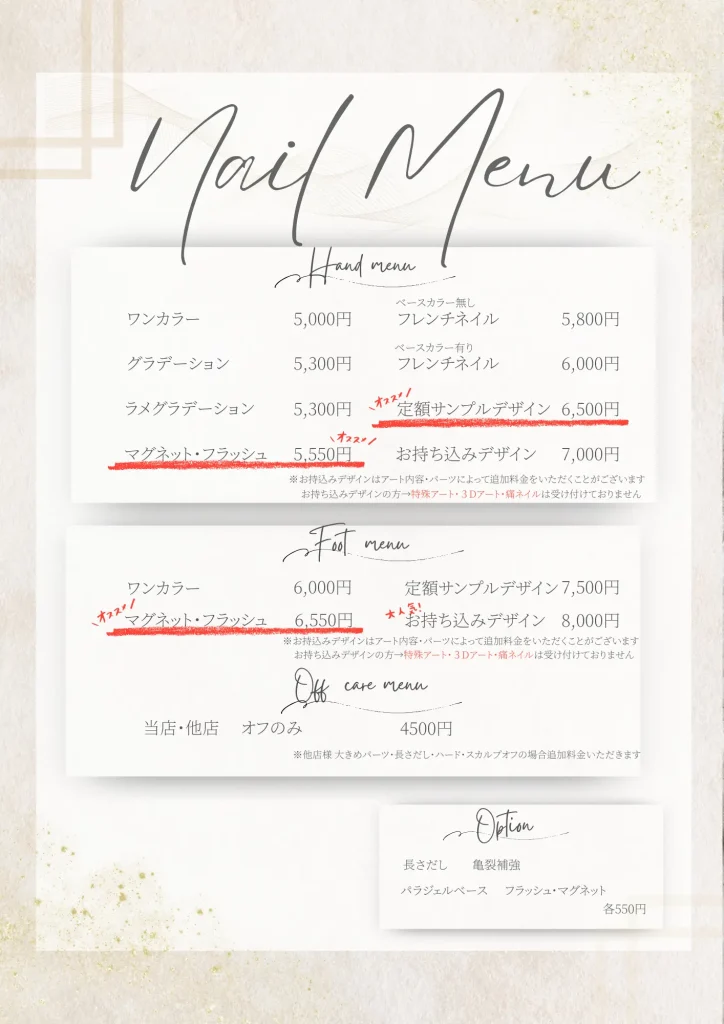 Nail Menu
Hand menu
ワンカラー 5,000円
グラデーション 5,300円
ラメグラデーション 5,300円
オススメ!
マグネット・フラッシュ 5,550円
ベースカラー無し
フレンチネイル 5,800円
ベースカラー有り
フレンチネイル 6,000円
オススメ!
定額サンプルデザイン 6,500円
お持ち込みデザイン 7,000円
※お持込みデザインはアート内容・パーツによって追加料金をいただくことがございます
お持ち込みデザインの方→特殊アート・3Dアート・痛ネイルは受け付けておりません
Foot menu
ワンカラー 6,000円
オススメ!
マグネット・フラッシュ 6,550円
定額サンプルデザイン 7,500円
大人気!
お持ち込みデザイン 8,000円
※お持込みデザインはアート内容・パーツによって追加料金をいただくことがございます
お持ち込みデザインの方→特殊アート・3Dアート・痛ネイルは受け付けておりません
Off care menu
当店・他店 オフのみ 4500円
※他店様 大きめパーツ・長さだし・ハード・スカルプオフの場合追加料金いただきます
Option
長さだし 亀裂補強
パラジェルベース フラッシュ・マグネット
各550円